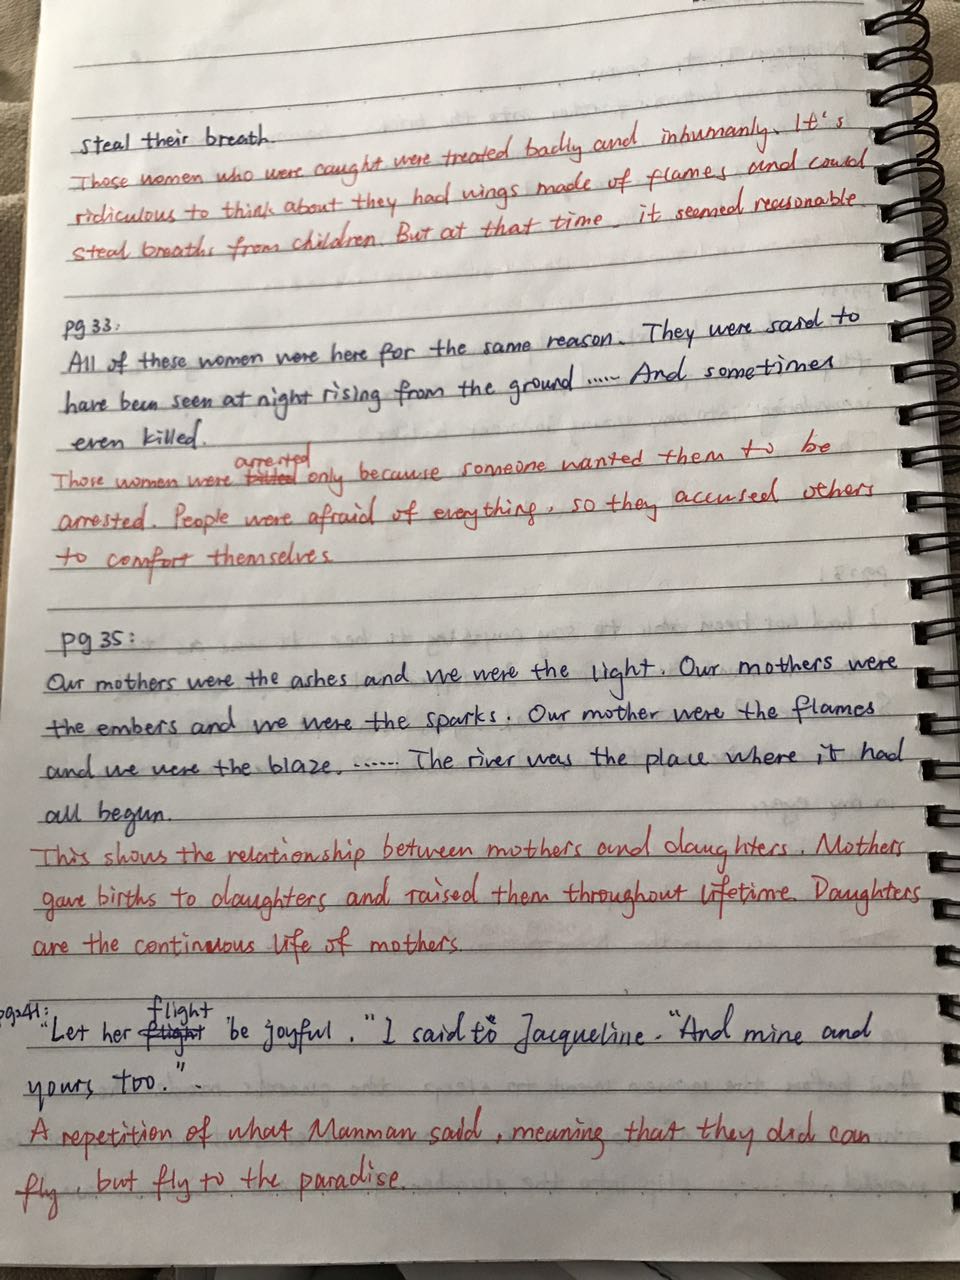 steal their breath.
Those women who were caught were treated badly and inhumanly. It's
ridiculous to think about they had wings made of flames and could
steal breaths from children. But at that time, it seemed reasonable
pg 33:
All of these women were here for the same reason. They were said to
have been seen at night rising from the ground ..... And sometimes
even killed.
arrested
Those women were killed only because someone wanted them to be
arrested. People were afraid of everything, so they accused others
to comfort themselves.
pg 35:
Our mothers were the ashes and we were the light. Our mothers were
the embers and we were the sparks. Our mother were the flames
and we were the blaze. ...... The river was the place where it had
all begun.
This shows the relationship between mothers and daughters. Mothers
gave births to daughters and raised them throughout lifetime. Daughters
are the continuous life of mothers.
flight
pg 41: "Let her flight be joyful." I said to Jacqueline. "And mine and
yours too.".
A repetition of what Manman said, meaning that they did can
fly, but fly to the paradise.